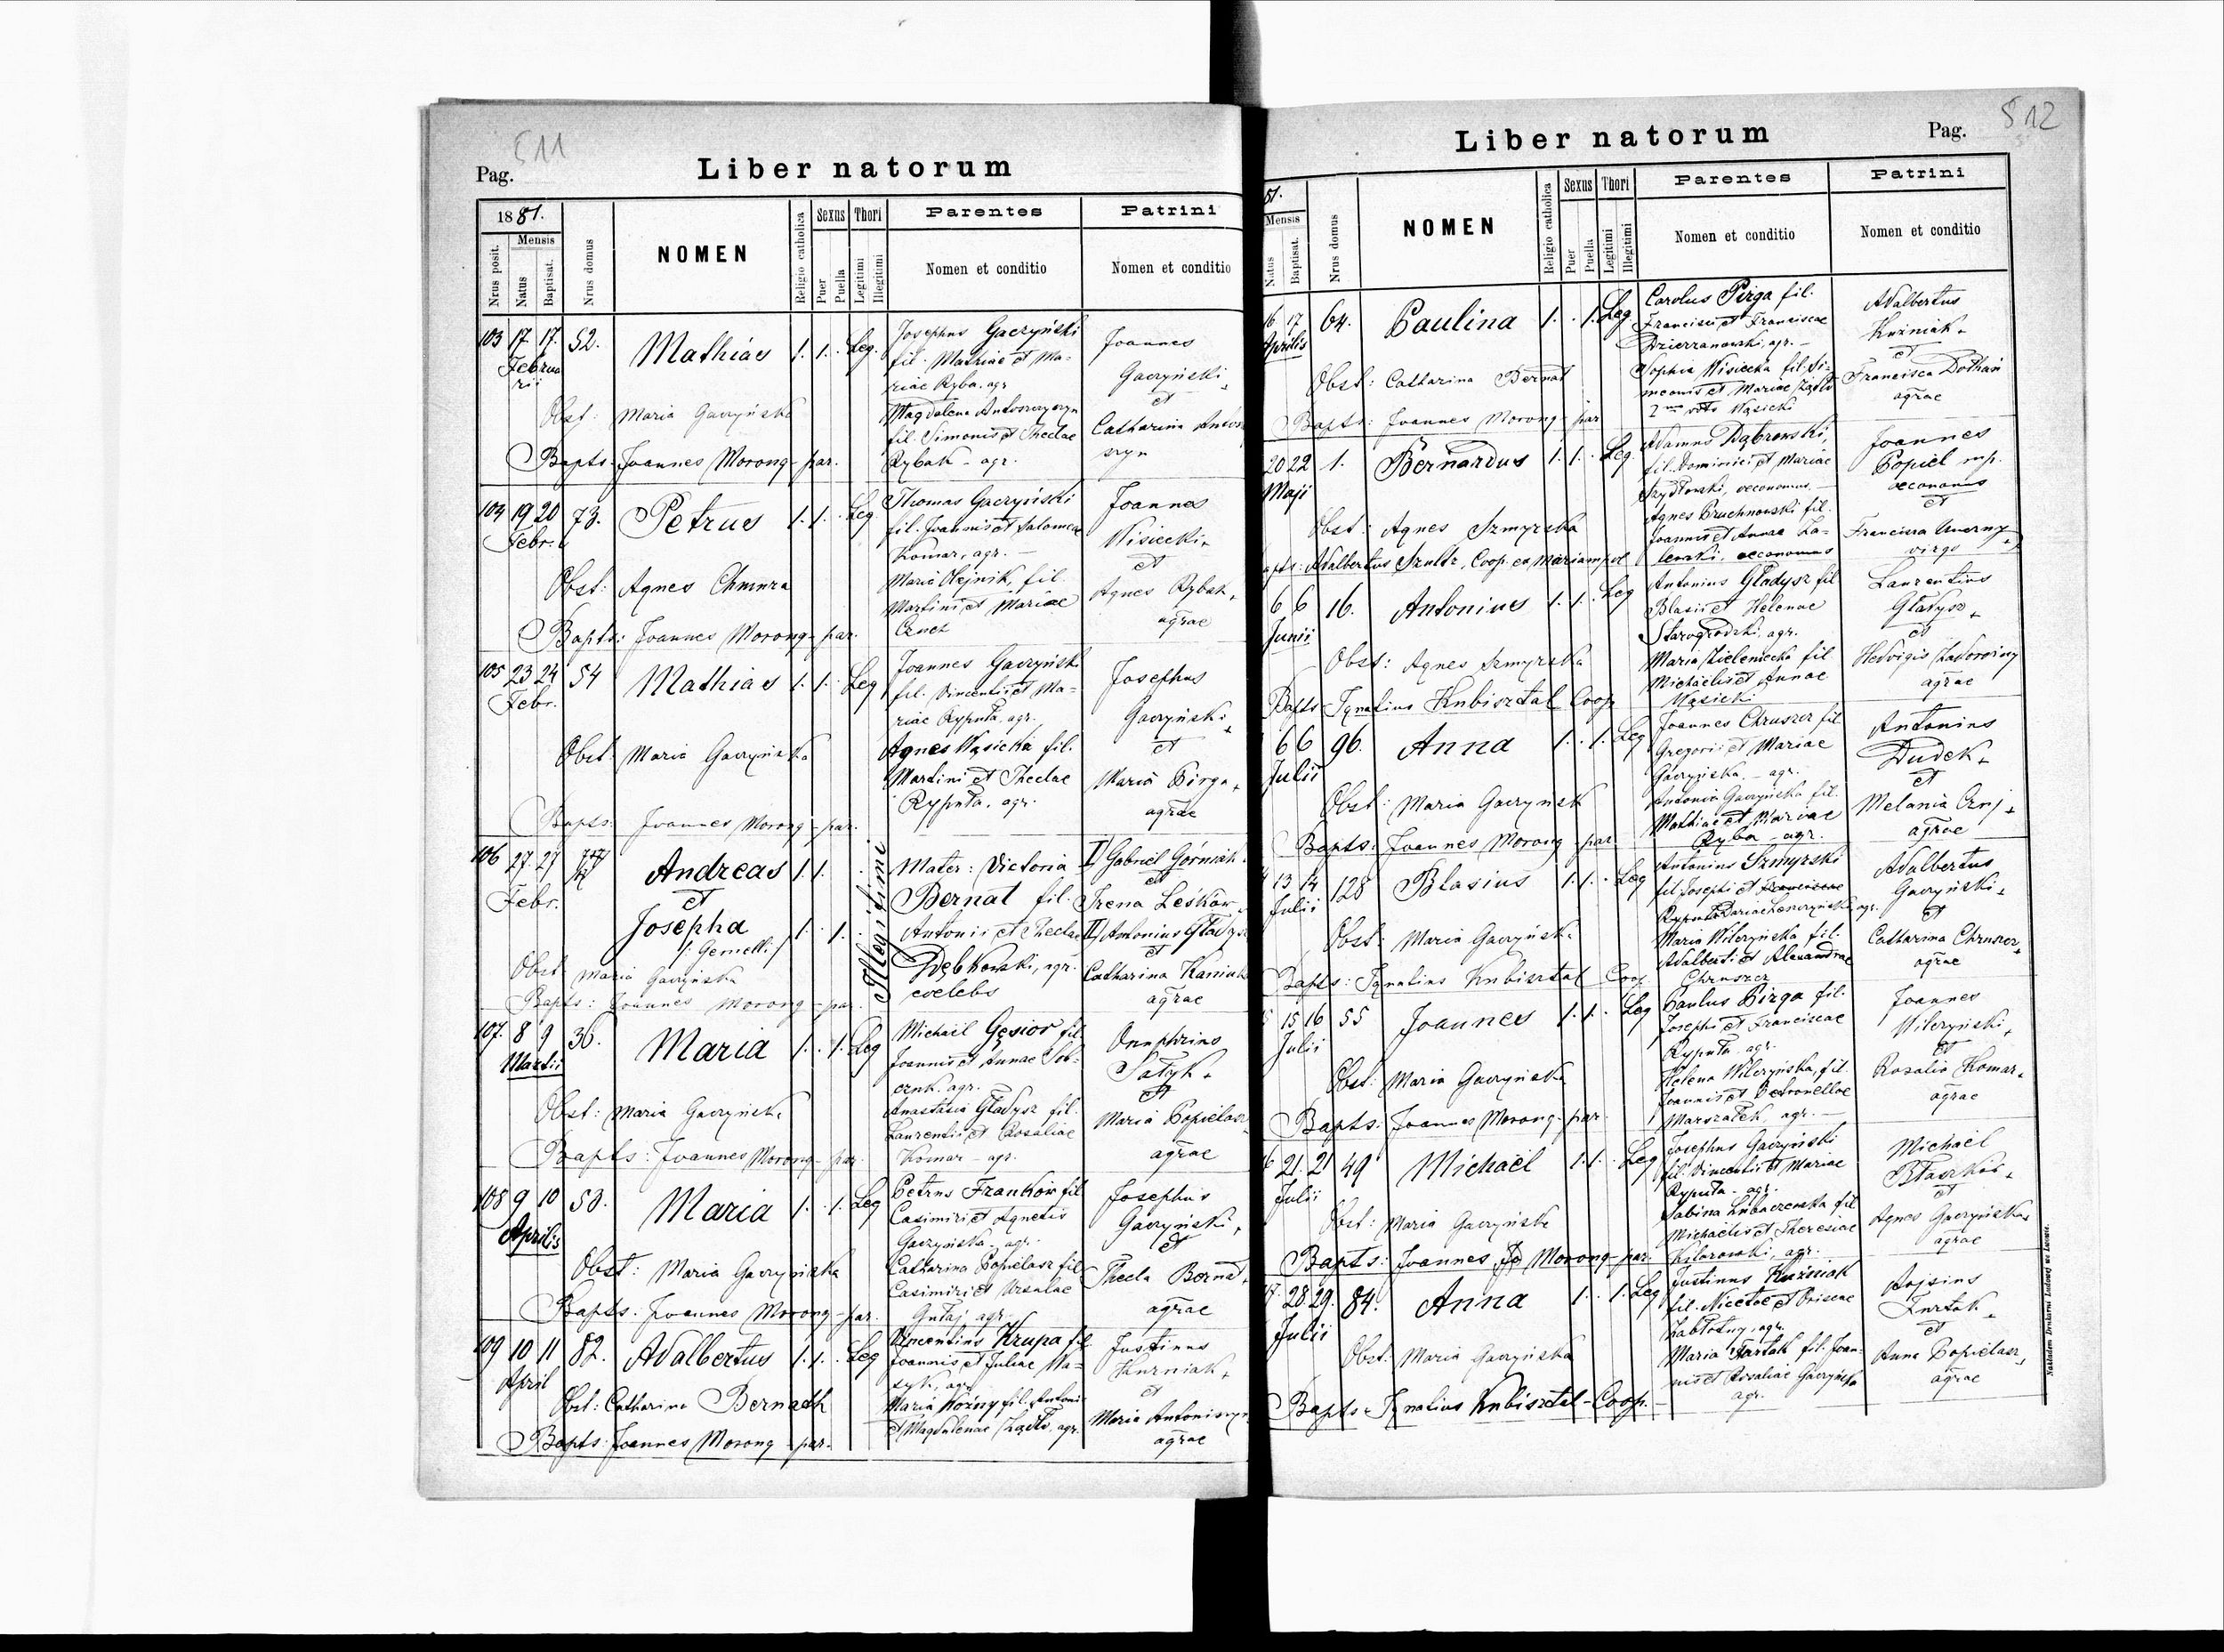 511
Pag.
Liber natorum
1881.
Nrus posit.
Mensis
Natus
Baptisat.
Nrus domus
NOMEN
Religio catholica
Sexus
Puer
Puella
Thori
Legitimi
Illegitimi
Parentes
Nomen et conditio
Patrini
Nomen et conditio
103 17. 17. 52. Mathias 1. 1. . Leg.
Februarii
Josephus Gaczyński
fil. Mathiae et Ma-
riae Ryba. agr.
Magdalena
fil. Simonis et Theclae
Rybak - agr.
Joannes
Gaczyński +
et
Catharina
Obst: Maria Gaczyńska
Bapts: Joannes Morong - par.
104 19 20 73. Petrus 1. 1. . Leg
Febr.
Thomas Gaczyński
fil. Joannis et Salomeae
Komar, agr. —
Maria Olejnik, fil.
Martini et Mariae
Czuch
Joannes
Wisiecki +
et
Agnes Rybak +
agrae
Obst: Agnes Chmura
Bapts: Joannes Morong - par.
105 23 24 54 Mathias 1. 1. . Leg
Febr.
Joannes Gaczyński
fil. Vincentii et Ma-
riae Ryputa, agr.
Agnes Wąsicka fil.
Martini et Theclae
Ryputa, agr.
Josephus
Gaczyński +
et
Maria Pirga +
agrae
Obst: Maria Gaczyńska
Bapts: Joannes Morong - par.
106 27 27 Andreas 1. 1. .
Febr.
et
Josepha 1. . 1.
/: Gemelli :/
Illegitimi
Mater: Victoria
Bernat fil.
Antonii et Theclae
Dębkowski, agr.
coelebs
I/ Gabriel Górniak
et
Irena Leśków
II/ Antonius Gładysz
et
Catharina
agrae
Obst: Maria Gaczyńska
Bapts: Joannes Morong - par.
107. 8 9 36. Maria 1. . 1. Leg
Martii
Michael Gęsior fil
Joannis et Annae Sob-
czuk, agr.
Anastasia Gładysz fil.
Laurentii et Rosaliae
Komar - agr.
Onuphrius
Satyk +
et
Maria Popielasz
agrae
Obst: Maria Gaczyńska
Bapts: Joannes Morong - par.
108 9 10 50. Maria 1. . 1. Leg
Aprilis
Petrus Franków fil
Casimiri et Agnetis
Gaczyńska - agr.
Catharina Popielasz fil
Casimiri et Ursulae
Gutaj agr.
Josephus
Gaczyński +
et
Thecla Bernat +
agrae
Obst: Maria Gaczyńska
Bapts: Joannes Morong - par.
109 10 11 82. Adalbertus 1. 1. . Leg
April
Vincentius Krupa fil
Joannis et Juliae Ma-
zyk, agr.
Maria Woźny fil. Antonii
et Magdalenae Żądło, agr.
Justinus
Kuzniak +
et
Maria
agrae
Obst: Catharina Bernath
Bapts: Joannes Morong - par.
512
Liber natorum
Pag.
81.
Mensis
Natus
Baptisat.
Nrus domus
NOMEN
Religio catholica
Sexus
Puer
Puella
Thori
Legitimi
Illegitimi
Parentes
Nomen et conditio
Patrini
Nomen et conditio
16 17 64. Paulina 1. . 1. Leg
Aprilis
Carolus Pirga fil.
Francisci et Franciscae
Dzierzanowski, agr. —
Sophia Wisiecka fil. Si-
meonis et Mariae Żądło
2do voto Wąsicki
Adalbertus
Kuźniak +
et
Francisca Dothań
agrae
Obst: Catharina Bernat
Bapts: Joannes Morong - par
20 22 1. Bernardus 1. 1. . Leg.
Maji
Adamus Dąbrowski,
fil. Dominici et Mariae
Szydłowski, oeconomus. —
Agnes Pruchnowski fil.
Joannis et Annae Za-
leski, oeconomus
Joannes
Popiel mp.
oeconomus
et
Francisca
virgo
Obst: Agnes Szmyrska
apts: Adalbertus Szultz, Coop. ex Mariampol
6 6 16. Antonius 1. 1. . Leg
Junii
Antonius Gładysz fil
Blasii et Helenae
Starogrodzki, agr.
Maria Zieleniecka fil
Michaelis et Annae
Wąsicki
Laurentius
Gładysz +
et
Hedvigis Zadorożny
agrae
Obst: Agnes Szmyrska
Bapts Ignatius Kubisztal Coop
6 6 96. Anna 1. . 1. Leg
Julii
Joannes Chruszcz fil
Gregorii et Mariae
Gaczyńska. - agr.
Antonia Gaczyńska fil.
Mathiae et Mariae
Ryba - agr.
Antonius
Dudek +
et
Melania Czuj +
agrae
Obst: Maria Gaczyńsk
Bapts: Joannes Morong - par
13 14 128 Blasius 1. 1. . Leg
Julii
Antonius Szmyrski
fil. Josephi et Franciscae
Maria Wilczyńska fil.
Adalberti et Alexandrae
Chruszcz
Adalbertus
Gaczyński +
et
Catharina Chruszcz +
agrae
Obst: Maria Gaczyńska
Bapts: Ignatius Kubisztal Coop
15 16 55 Joannes 1. 1. . Leg
Julii
Paulus Pirga fil.
Josephi et Franciscae
Ryputa agr.
Helena Wilczyńska, fil.
Joannis et Petronellae
Marszałek agr. —
Joannes
Wilczyński +
et
Rosalia Komar +
agrae
Obst: Maria Gaczyńska
Bapts: Joannes Morong - par.
21. 21 49 Michaël 1. 1. . Leg
Julii
Josephus Gaczyński
fil. Vincentii et Mariae
Ryputa - agr.
Sabina Lubaczewska fil
Michaelis et Theresiae
agr.
Michaël
Błaszków +
et
Agnes Gaczyńska
agrae
Obst: Maria Gaczyńska
Bapts: Joannes Jo Morong - par.
28 29. 84. Anna 1. . 1. Leg
Julii
Justinus Kuźniak
fil. Nicetae et Priscae
Zabłotny, agr.
Maria Furtak fil. Joan-
nis et Rosaliae Gaczyńska
agr.
Furtak +
et
Anna Popielasz +
agrae
Obst: Maria Gaczyńska
Bapts: Ignatius Kubisztal - Coop.
Nakładem Drukarni Ludowej we Lwowie.